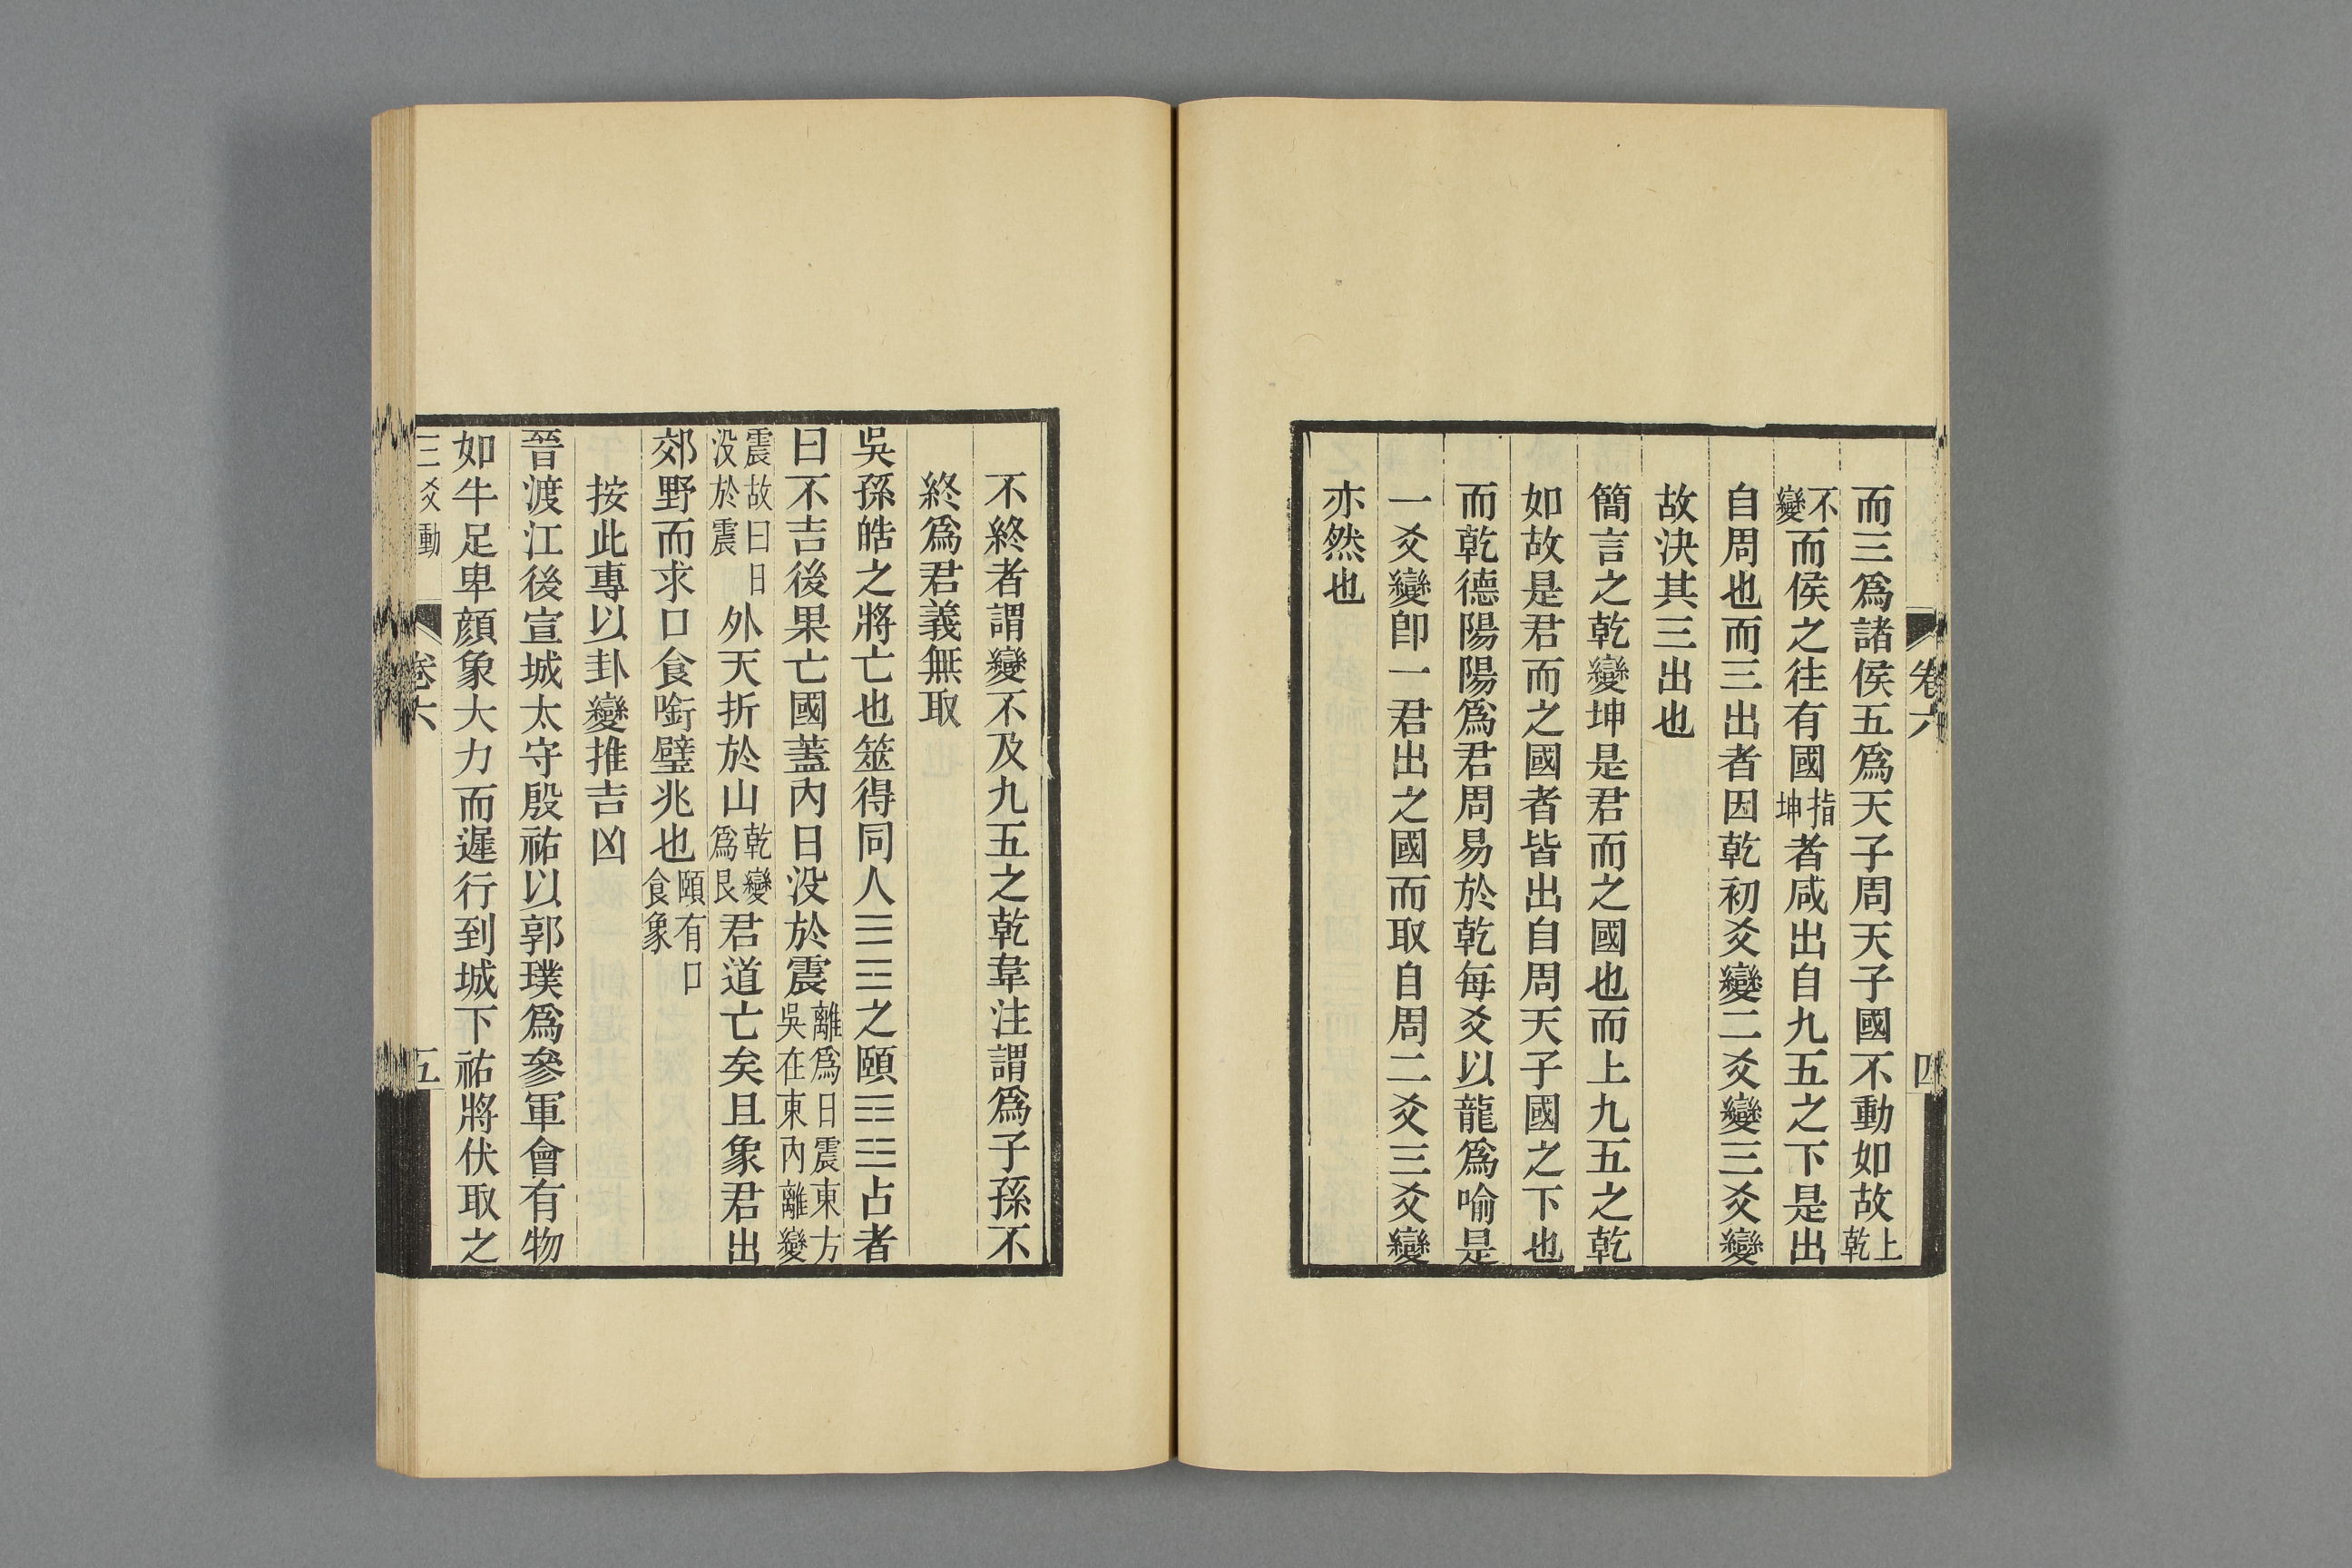 卷六
四
而三爲諸侯五爲天子周天子國不動如故上乾
不變而侯之往有國指坤者咸出自九五之下是出
自周也而三出者因乾初爻變二爻變三爻變
故決其三出也
簡言之乾變坤是君而之國也而上九五之乾
如故是君而之國者皆出自周天子國之下也
而乾德陽陽爲君周易於乾每爻以龍爲喻是
一爻變卽一君出之國而取自周二爻三爻變
亦然也
不終者謂變不及九五之乾韋注謂爲子孫不
終爲君義無取
吳孫皓之將亡也筮得同人☰☲之頤☶☳占者
曰不吉後果亡國蓋內日没於震離爲日震東方吳在東內離變
震故曰日没於震外天折於山乾變爲艮君道亡矣且象君出
郊野而求口食銜璧兆也頤有口食象
按此專以卦變推吉凶
晉渡江後宣城太守殷祐以郭璞爲參軍會有物
如牛足卑顏象大力而遲行到城下祐將伏取之
三爻動
卷六
五